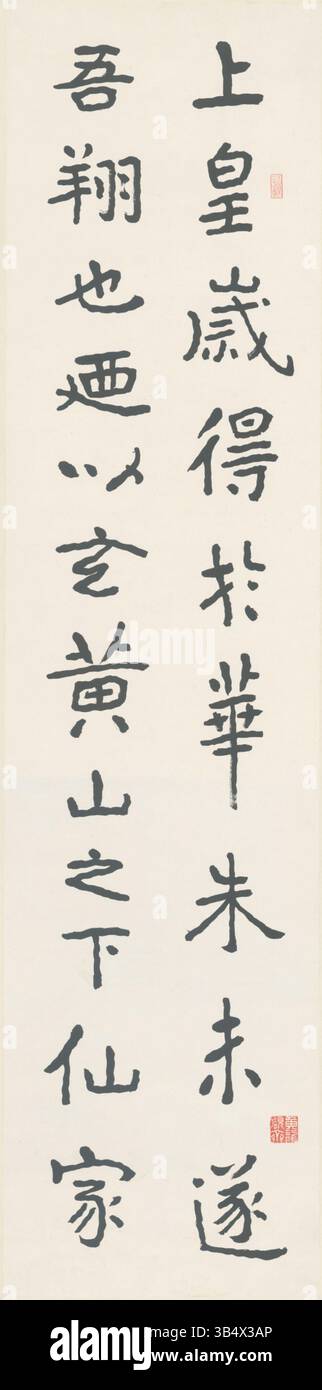 上皇歲得於華朱未遂
吾翔也廼以玄黃山之下仙家
alamy
Image ID: 3B4X3AP
www.alamy.com